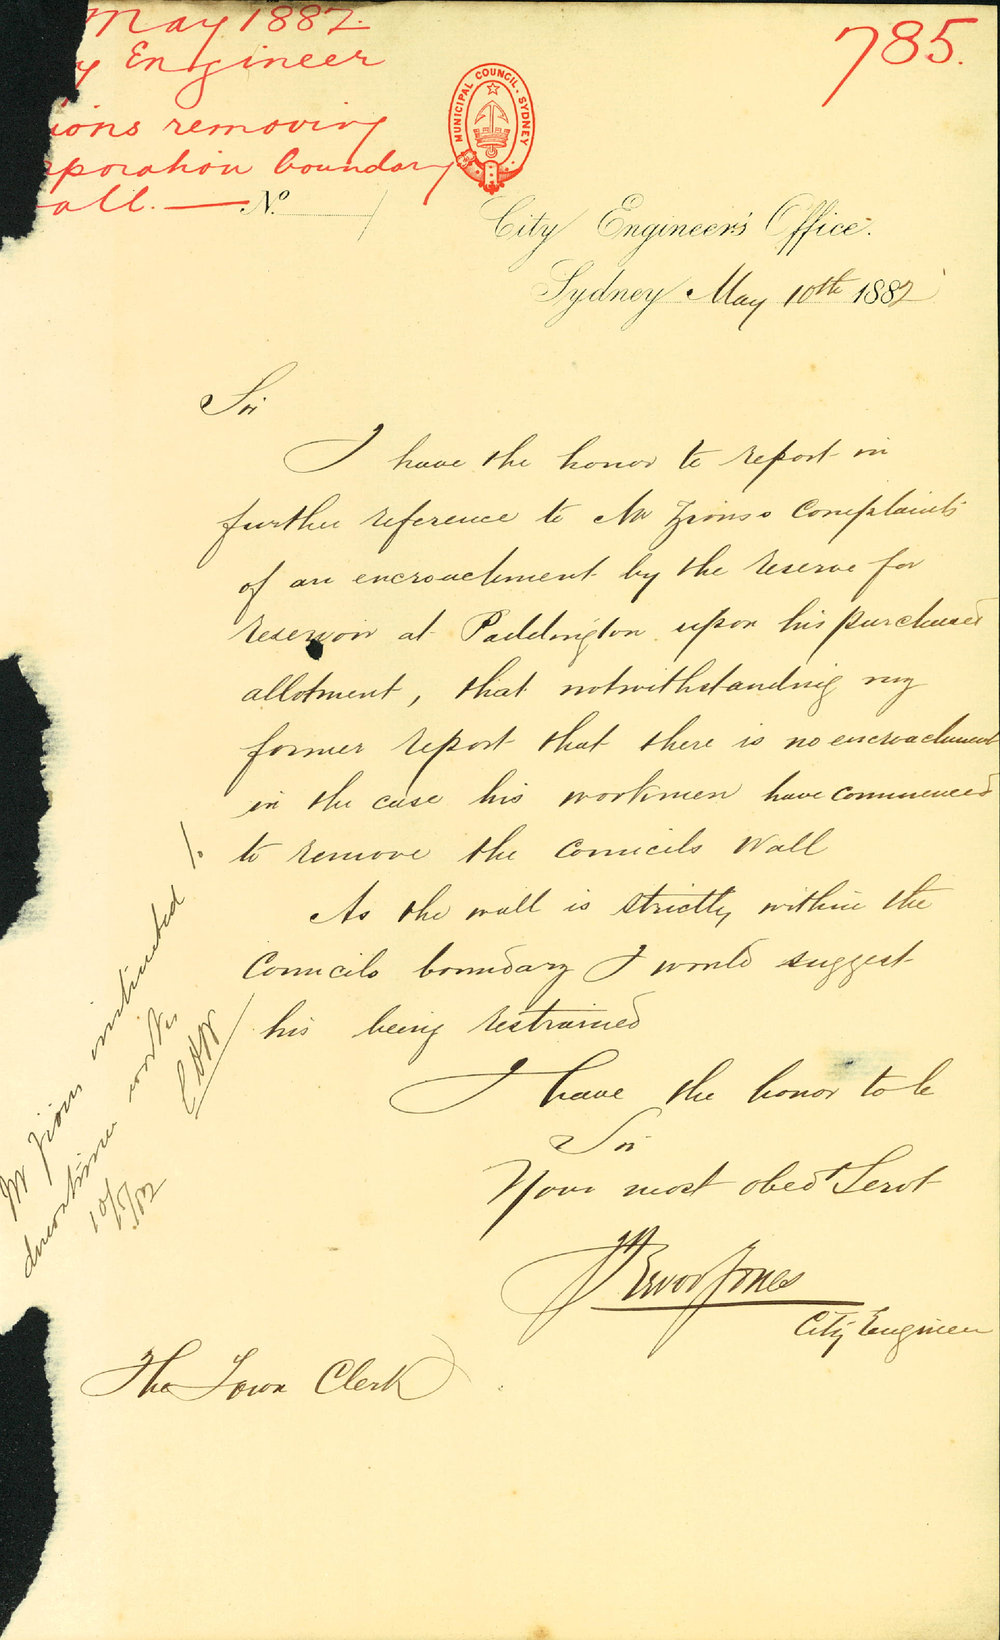 May 1882
y Engineer
ions removing
rporation boundary
all. — No.
785.
MUNICIPAL COUNCIL. SYDNEY
City Engineer's Office.
Sydney May 10th 1882
Sir
I have the honor to report in
further reference to Mr Zions's Complaints
of an encroachment by the reserve for
reservoir at Paddington upon his purchased
allotment, that notwithstanding my
former report that there is no encroachment
in the case his workmen have commenced
to remove the Councils Wall
As the wall is strictly within the
Councils boundary I would suggest
his being restrained
I have the honor to be
Sir
Your most obedt Servt
Trevor Jones
City Engineer
The Town Clerk
Mr Zions instructed to
discontinue works
10/5/82